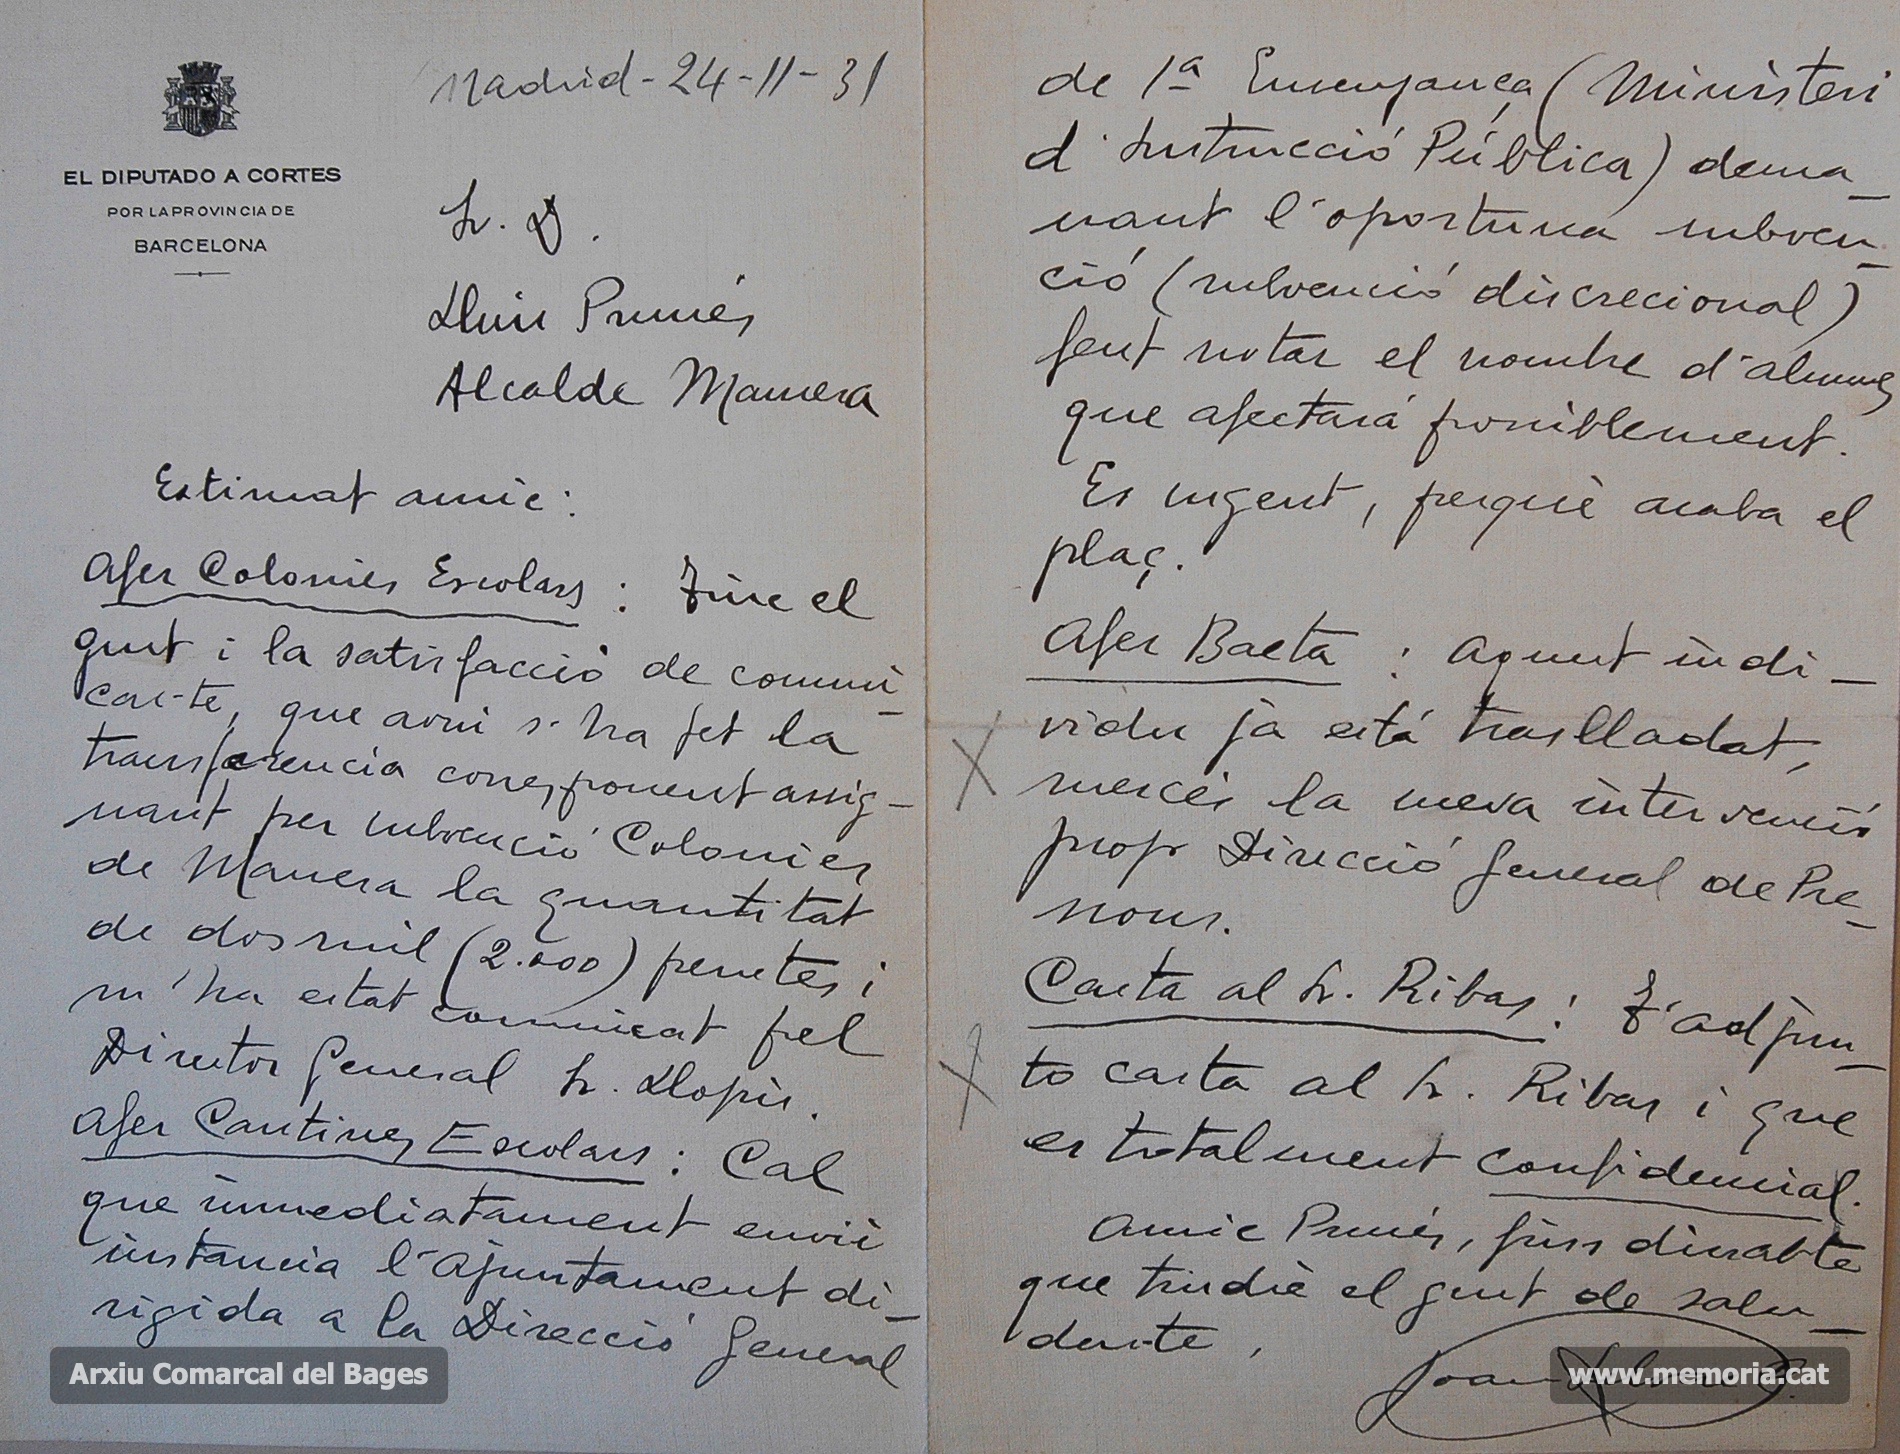 Madrid - 24-11-31
EL DIPUTADO A CORTES
POR LA PROVINCIA DE
BARCELONA
Sr. D.
Lluis Prunés
Alcalde Manresa
Estimat amic:
Afer Colonies Escolars: Tinc el
gust i la satisfacció de comuni-
car-te, que avui s'ha fet la
transferencia corresponent assig-
nant per subvenció Colonies
de Manresa la quantitat
de dos mil (2.000) pessetes i
m'ha estat comunicat pel
Director General Sr. Llopis.
Afer Cantines Escolars: Cal
que immediatament envii
instancia l'Ajuntament di-
rigida a la Direcció General
de 1ª Ensenyança (Ministeri
d'Instrucció Pública) dema-
nant l'oportuna subven-
ció (subvenció discrecional)
fent notar el nombre d'alumnes
que afectará possiblement.
Es urgent, perquè acaba el
plaç.
Afer Baeta: Aquest indi-
vidu ja está traslladat,
mercés la meva intervenció
prop Direcció General de Pre-
sons.
Carta al Sr. Ribas: T'adjun-
to carta al Sr. Ribas i que
es totalment confidencial.
Amic Prunés, fins dissabte
que tindré el gust de salu-
dar-te,
Joan
Arxiu Comarcal del Bages
www.memoria.cat